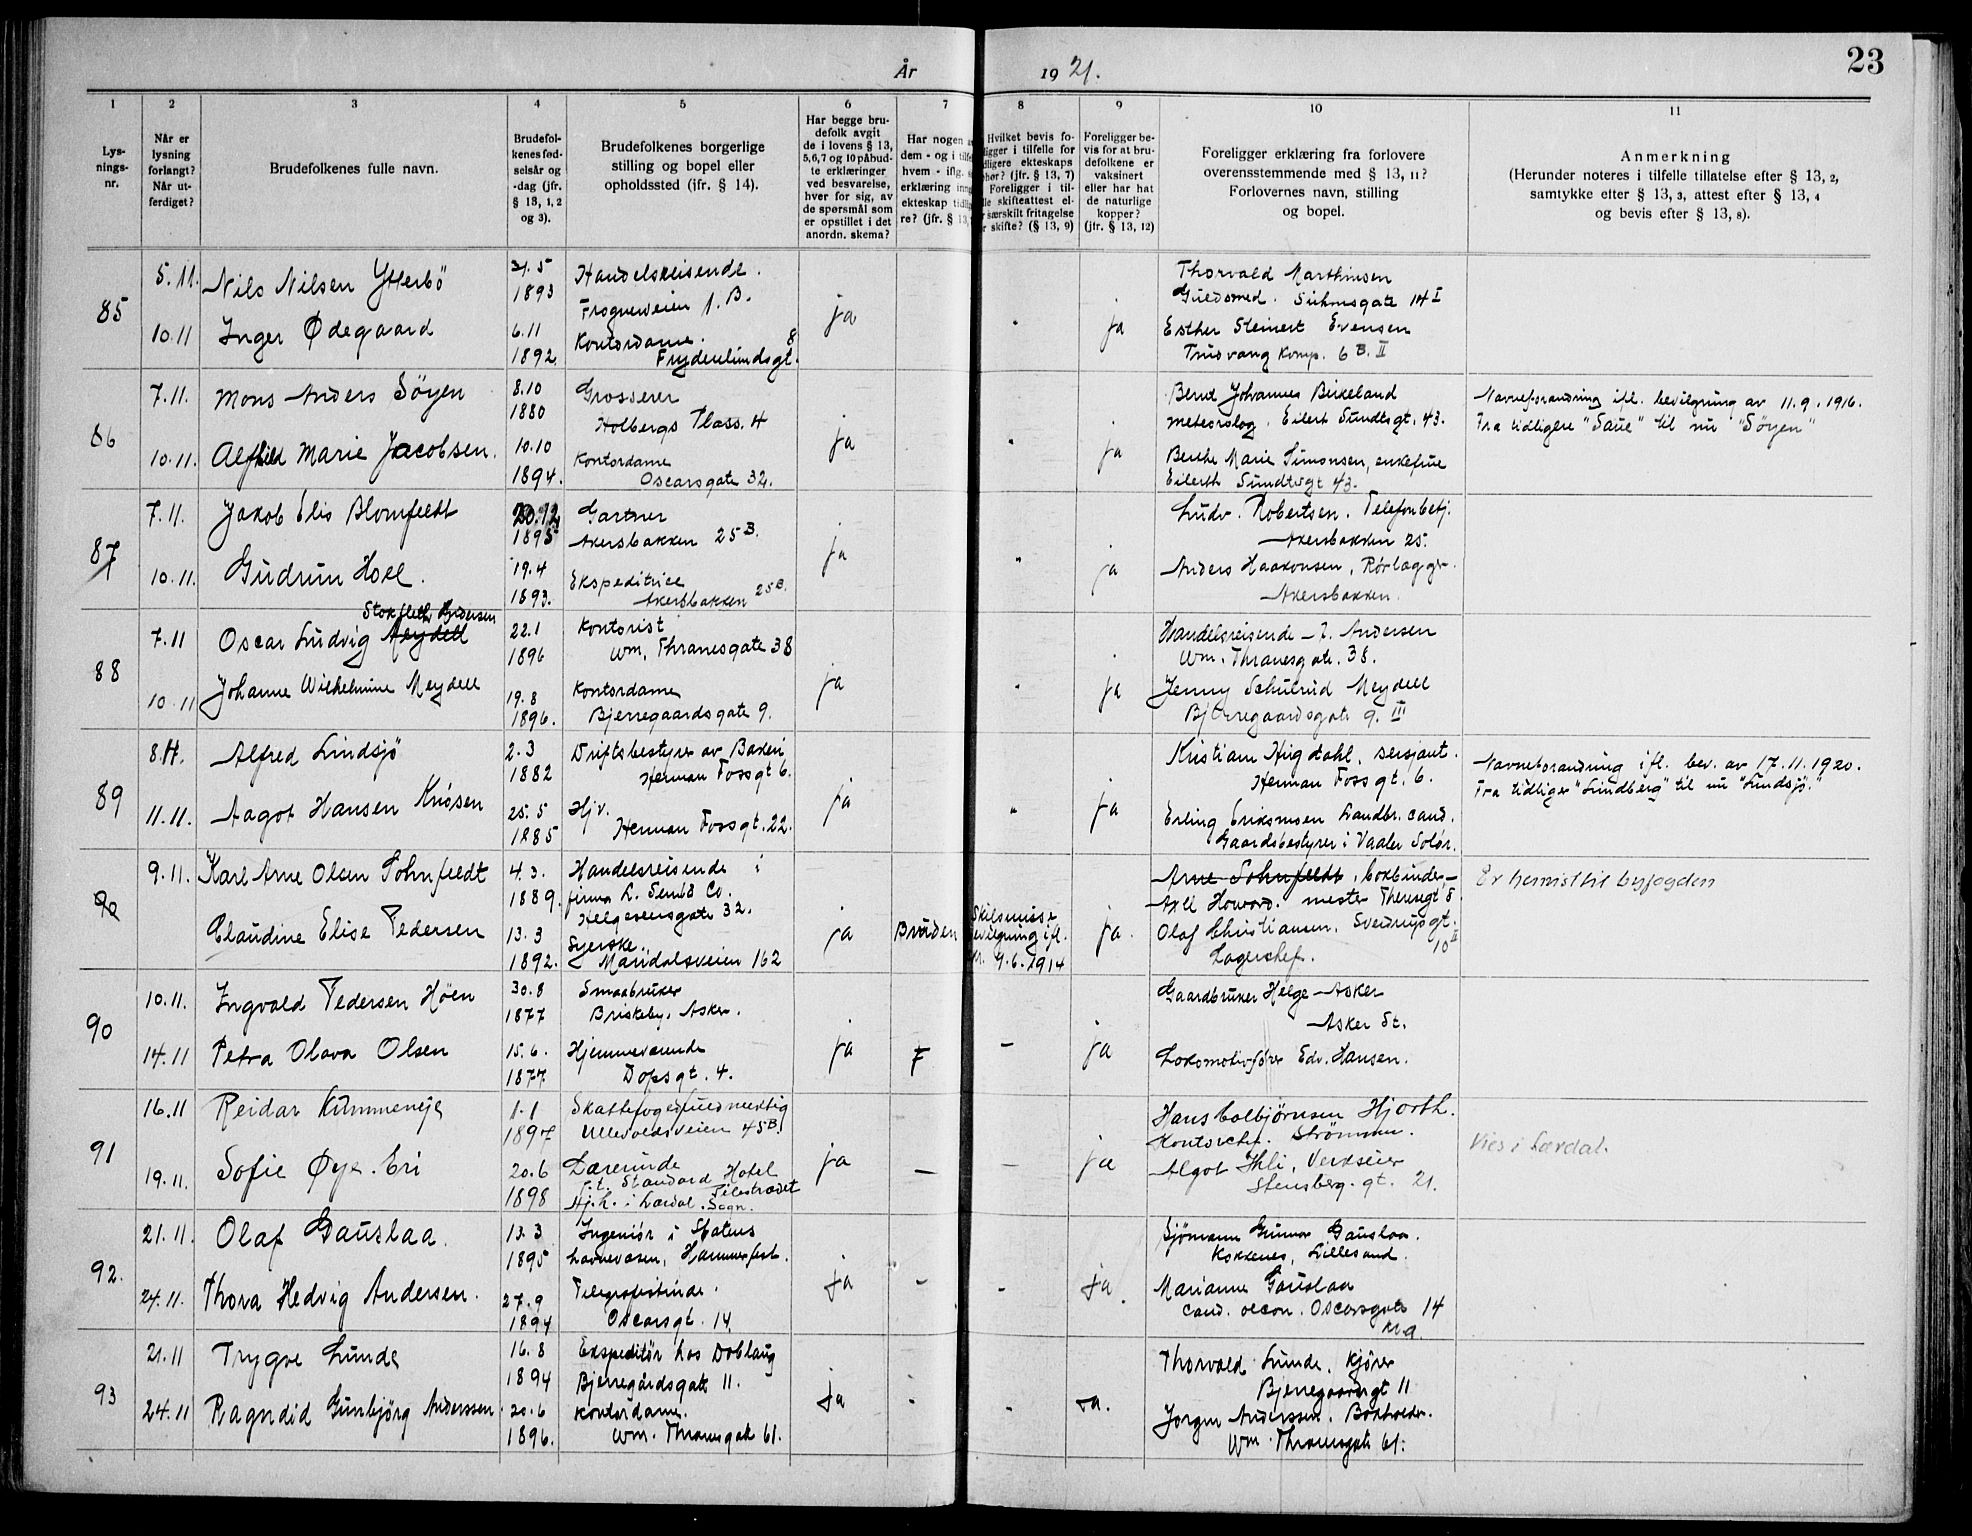 År 1921.
23
1 2 3 4 5 6 7 8 9 10 11
Lys-
nings-
nr.
Når er
lysning
forlangt?
Når ut-
ferdiget?
Brudefolkenes fulle navn.
Brudefol-
kenes fød-
selsår og
-dag (jfr.
§ 13, 1, 2
og 3).
Brudefolkenes borgerlige
stilling og bopel eller
opholdssted (jfr. § 14).
Har begge bru-
defolk avgit
de i lovens § 13,
5,6,7 og 10 påbud-
te erklæringer
ved besvarelse,
hver for sig, av
de spørsmål som
er opstillet i det
anordn. skema?
Har nogen
dem - og i tilfe
hvem - iflg.
erklæring inng
ekteskap tidlig
re? (jfr. § 13,
Hvilket bevis fo-
ligger i tilfelle for
dligere ekteskaps
phør? (jfr. § 13, 7)
Foreligger i til-
lle skifteattest el-
r særskilt fritagelse
r skifte? (§ 13, 9)
Foreligger be-
vis for at bru-
defolkene er
vaksinert
eller har hat
de naturlige
kopper?
(jfr. § 13, 12)
Foreligger erklæring fra forlovere
overensstemmende med § 13, 11?
Forlovernes navn, stilling
og bopel.
Anmerkning
(Herunder noteres i tilfelle tillatelse efter § 13, 2,
samtykke efter § 13, 3, attest efter § 13, 4
og bevis efter § 13, 8).
85
5.11. Nils Nilsen Ytterbö
10.11 Inger Ødegaard
5
1893
6.11
1892.
Handelsreisende.
Frognerveien 1.B.
Kontordame. 8
Frydenlundsgt.
ja
ja
Thorvald Marthinsen
Guldsmed. Suhmsgate 14 I
Esther Steinert Evensen
Trudvang Komp. 6 B. II
86
7.11. Mons Anders Söyen
10.11. Alfhild Marie Jacobsen.
8.10
1880
10.10
1894.
Grosserer
Holbergs Plass. 4
Kontordame
Oscarsgate 32.
ja
ja
Bernt Johannes Birkeland
meteorolog. Eilert Sundtsgt. 43.
Berthe Marie Simonsen, enkefrue
Eilerth Sundtsgt 43.
Navneforandring ifl. bevilgning av 11.9.1916.
Fra tidligere "Saue" til nu "Söyen"
87
7.11. Jakob Elis Blomfeldt
10.11. Gudrun Holl.
1895
19.4
1893.
Gartner
Akersbakken 25 B.
Ekspeditrice
Akersbakken 25 B.
ja
ja
Ludv. Robertsen. Telefonbetj.
Akersbakken 25.
Anders Haakonsen, Rörlægger.
Akersbakken.
88
Stokfleth Andersen
7.11 Oscar Ludvig Meydell
10 11 Johanne Wilhelmine Meydell
22.1
1896
19.8
1896.
Kontorist
Wm. Thranesgate 38
Kontordame
Bjerregaardsgate 9.
ja
ja
Handelsreisende J. Andersen
Wm. Thranesgate. 38.
Jenny Schulrud Meydell
Bjerregaardsgate 9. III
89
8.11. Alfred Lindsjö
11.11. Aagot Hansen Knösen
2.3
1882
25.5
1885
Driftsbestyrer av Bakeri
Herman Fossgt 6.
Hjv.
Herman Fossgt. 22.
ja
ja
Kristian Higdahl, sersjant.
Herman Fossgt. 6.
Erling Eriksmoen Landbr. cand.
Gaardsbestyrer i Vaaler Solör.
Navneforandring ifl. bev. av 17.11.1920.
Fra tidliger "Lundberg" til nu "Lindsjö."
90
9.11. Karl Arne Olsen Sohnfeldt
Claudine Elise Pedersen
4.3.
1889.
13.3
1892.
Handelsreisende i
firma L. Co.
Helgesensgate 32.
Syerske.
Maridalsveien 162
ja
Bruden
Skilsmisse
bevilgning ifl.
9.6.1914
ja.
Arne Sohnfeldt, bokbinder-
Axel Howard. mester Theresgt 8
Olaf Christiansen. Sverdrupsgt.
Lagerchef. 10 II
Er henvist til byfogden
90
10.11. Ingvald Pedersen Höen
14.11 Petra Olava Olsen
30.8
1877
15.6.
1877.
Smaabruker
Briskeby, Asker.
Hjemmeværende
Dopsgt. 4.
ja
F
-
ja
Gaardbruker Helge Asker
Asker St.
Lokomotivförer Edv. Hansen.
91
16.11 Reidar Kummeneje
19.11. Sofie Øye. Eri
1.1
1897
20.6
1898
Skattefogedfuldmektig
Ullevoldsveien 45 B.
Lærerinde
p.t. Standard Hotel
Pilestrædet
Hj.h. i Lærdal. Sogn.
ja
-
-
ja
Hans Colbjørnsen Hjorth.
Kontorchef. Strömmen.
Algot Ihli, Verkseier
Stensberg. gt. 21.
Vies i Lærdal.
92.
21.11. Olaf Gauslaa.
24.11. Thora Hedvig Andersen.
13.3
1895
27.9
1894
Ingeniör i Statens
havnevæsen, Hammerfest.
Telegrafistinde.
Oscarsgt. 14.
ja
-
-
ja.
Sjömann Gunnar Gauslaa.
Kokkenes, Lillesand.
Marianne Gauslaa
cand. oecon. Oscarsgate 14
Kr.a.
93
21.11 Trygve Lunde
24.11 Ragndid Gunbjörg Anderssen
16.8
1894
20.6
1896.
Ekspeditör hos Dobloug
Bjerregårdsgate 11.
Kontordame.
Wm. Thranesgate 61.
ja
-
-
ja.
Thorvald Lunde. Kjörer
Bjerregaardsgt 11
Jorgen Anderssen. Bokholder.
Wm. Thranesgate 61.